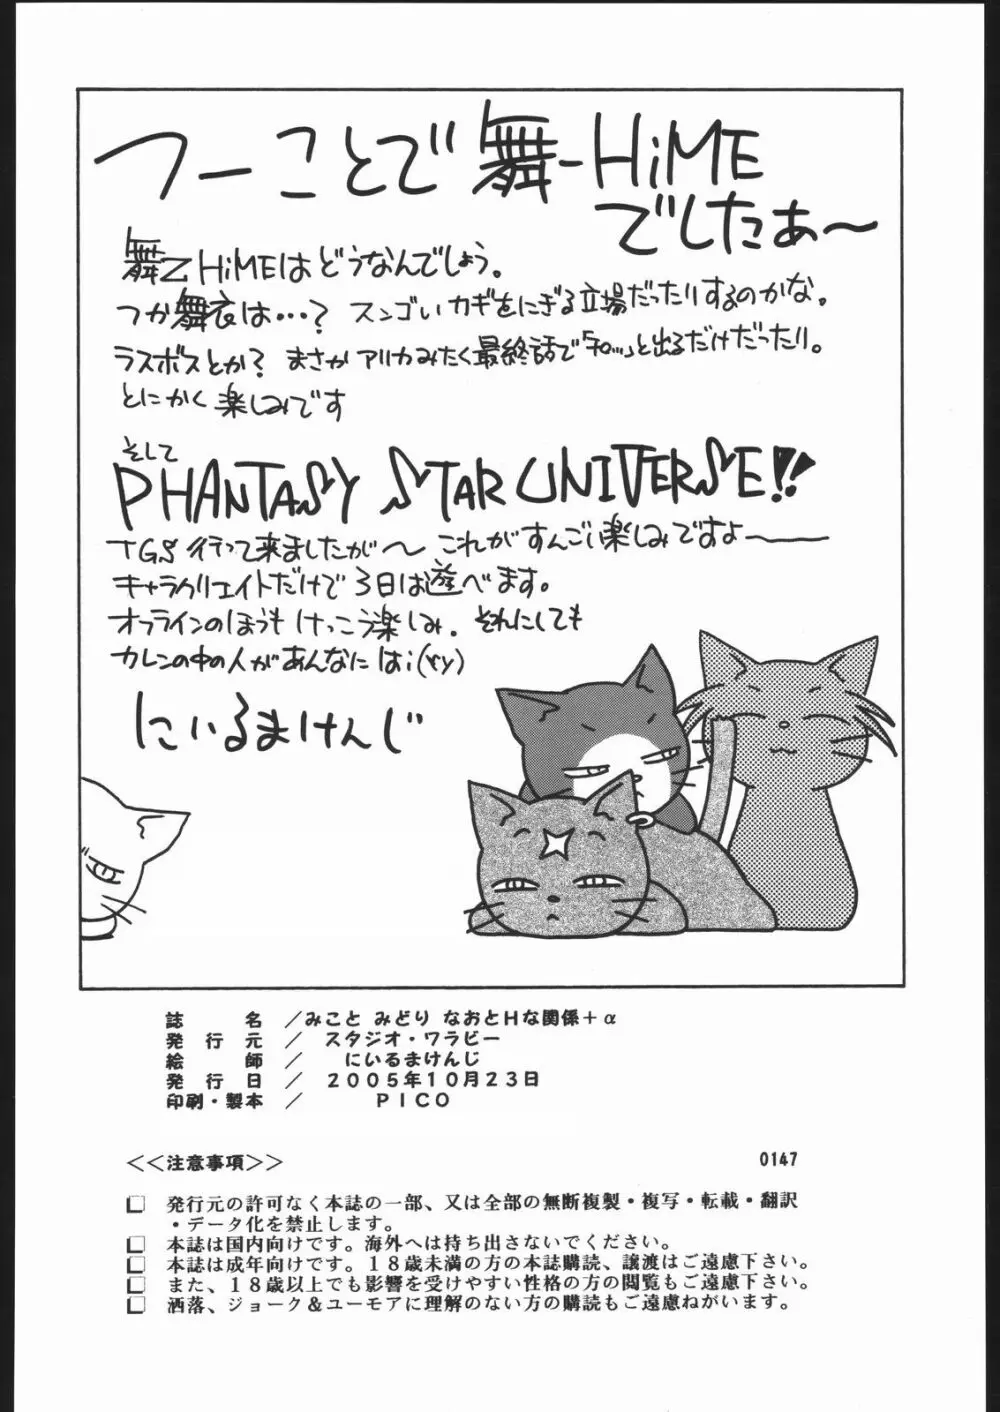 つーことで舞-HiME
でしたぁ〜
舞乙HiMEはどうなんでしょう。
つか舞衣は…？ スンゴいカギをにぎる立場だったりするのかな。
ラスボスとか？ まさかアリカみたく最終話で「チロッ」と出るだけだったり。
とにかく楽しみです
そして
PHANTASY STAR UNIVERSE!!
TGS行って来ましたが〜 これがすんごい楽しみですよ―――
キャラクリエイトだけで3日は遊べます。
オフラインのほうもけっこう楽しみ。それにしても
カレンの中の人があんなにはi(ry)
にいるまけんじ
誌　　名 ／みこと みどり なおとHな関係＋α
発 行 元 ／ スタジオ・ワラビー
絵　　師 ／ にいるまけんじ
発 行 日 ／ ２００５年１０月２３日
印刷・製本 ／ ＰＩＣＯ
＜＜注意事項＞＞
0147
□ 発行元の許可なく本誌の一部、又は全部の無断複製・複写・転載・翻訳
・データ化を禁止します。
□ 本誌は国内向けです。海外へは持ち出さないでください。
□ 本誌は成年向けです。１８歳未満の方の本誌購読、譲渡はご遠慮下さい。
□ また、１８歳以上でも影響を受けやすい性格の方の閲覧もご遠慮下さい。
□ 洒落、ジョーク＆ユーモアに理解のない方の購読もご遠慮ねがいます。